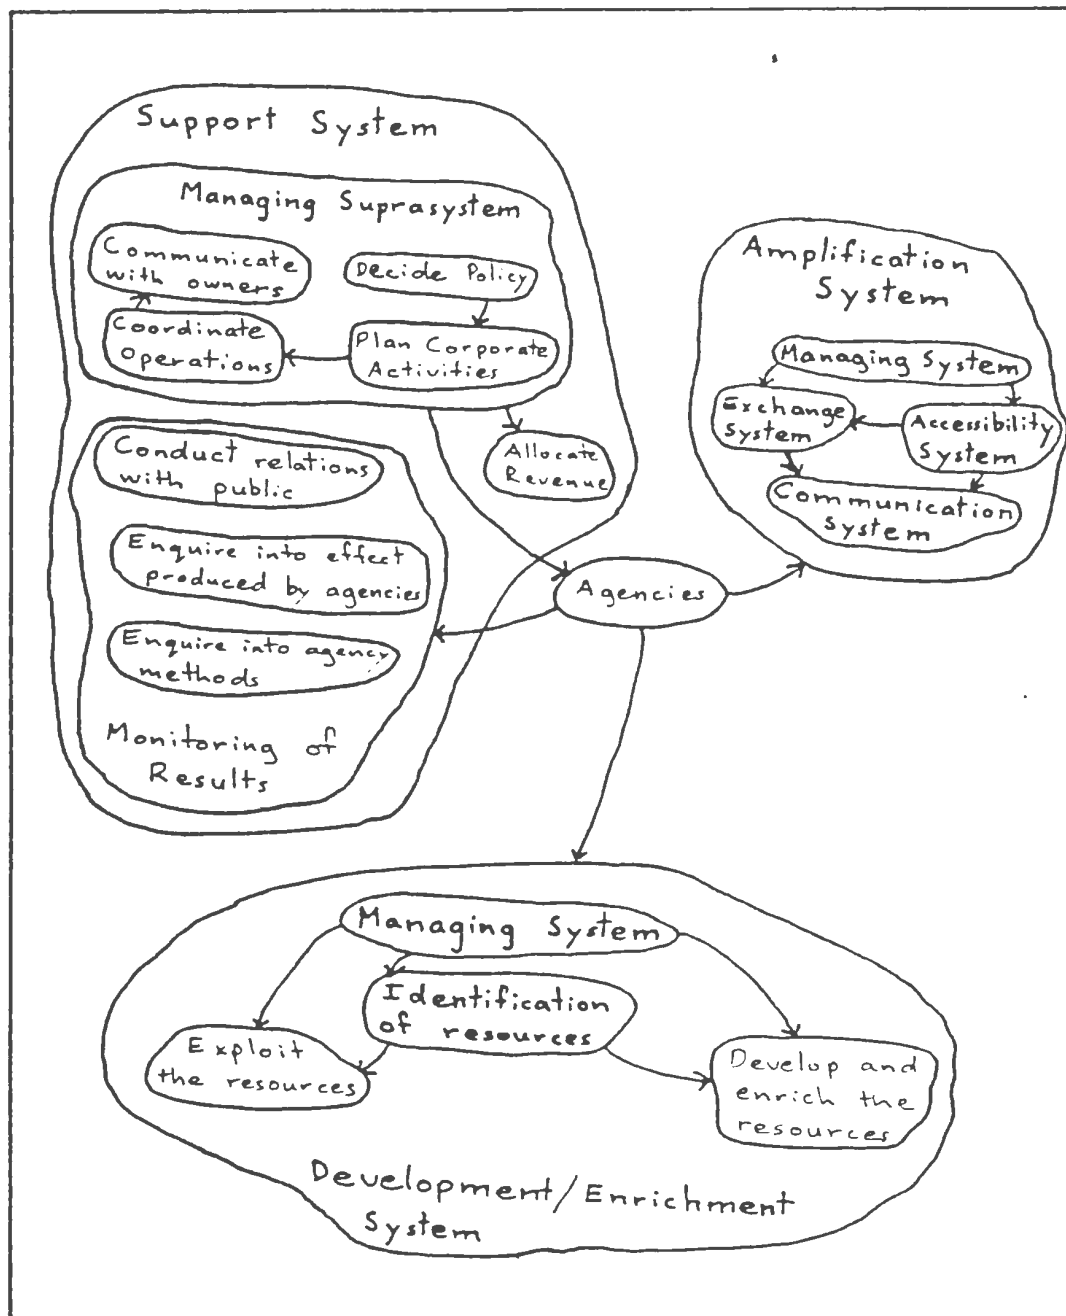 Support System
Managing Suprasystem
Communicate
with owners
Decide Policy
Coordinate
Operations
Plan Corporate
Activities
Allocate
Revenue
Conduct relations
with public
Enquire into effect
produced by agencies
Enquire into agency
methods
Monitoring of
Results
Agencies
Amplification
System
Managing System
Exchange
System
Accessibility
System
Communication
System
Managing System
Identification
of resources
Exploit
the resources
Develop and
enrich the
resources
Development/Enrichment
System